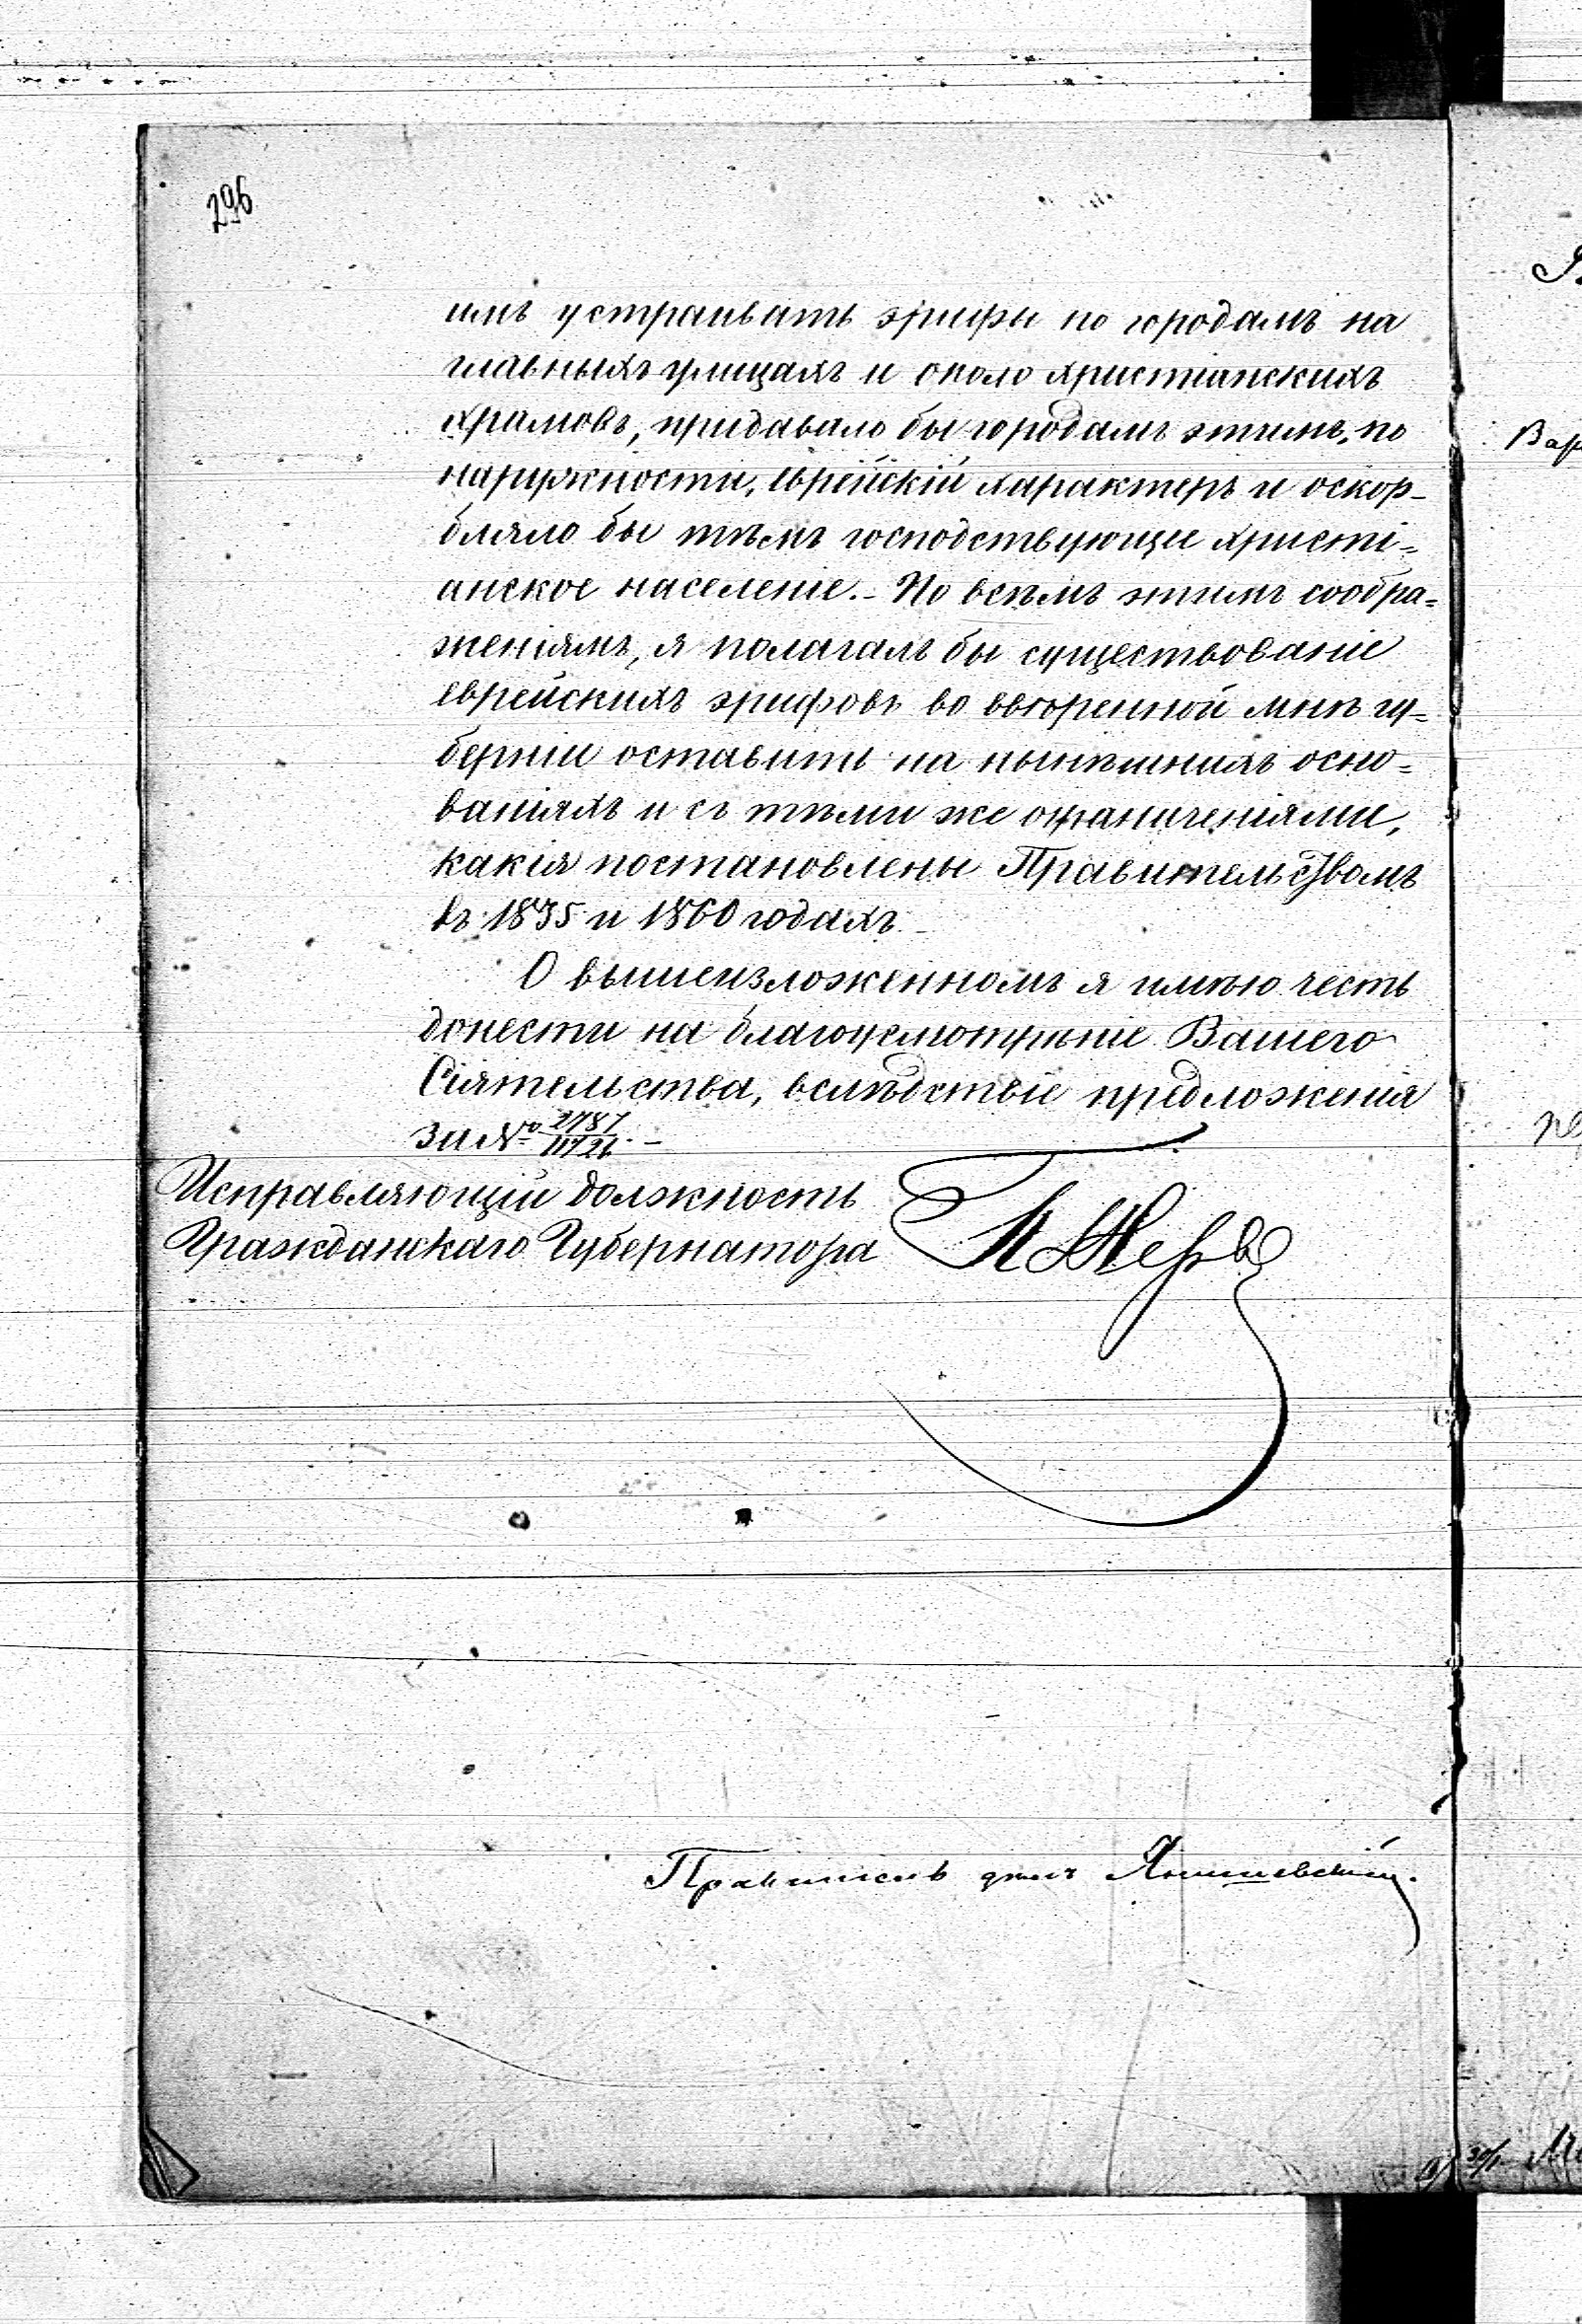 296
имъ устраивать эрифы по городамъ на
главныхъ улицахъ и около христіанскихъ
храмовъ, придавало бы городамъ этимъ, по
наружности, еврейскій характеръ и оскор-
бляло бы тѣмъ господствующее христі=
анское населеніе.- По всѣмъ этимъ сообра=
женіямъ, я полагалъ бы существованіе
еврейскихъ эрифовъ во ввѣренной мнѣ гу=
берніи оставить на нынѣшнихъ осно=
ваніяхъ и съ тѣми же ограниченіями,
какія постановлены Правительствомъ
въ 1835 и 1860 годахъ.
О вышеизложенномъ я имѣю честь
донести на благоусмотрѣніе Вашего
Сіятельства, вслѣдствіе предложенія
за №
Исправляющій должность
Гражданскаго Губернатора
Правитель дѣлъ
Вар